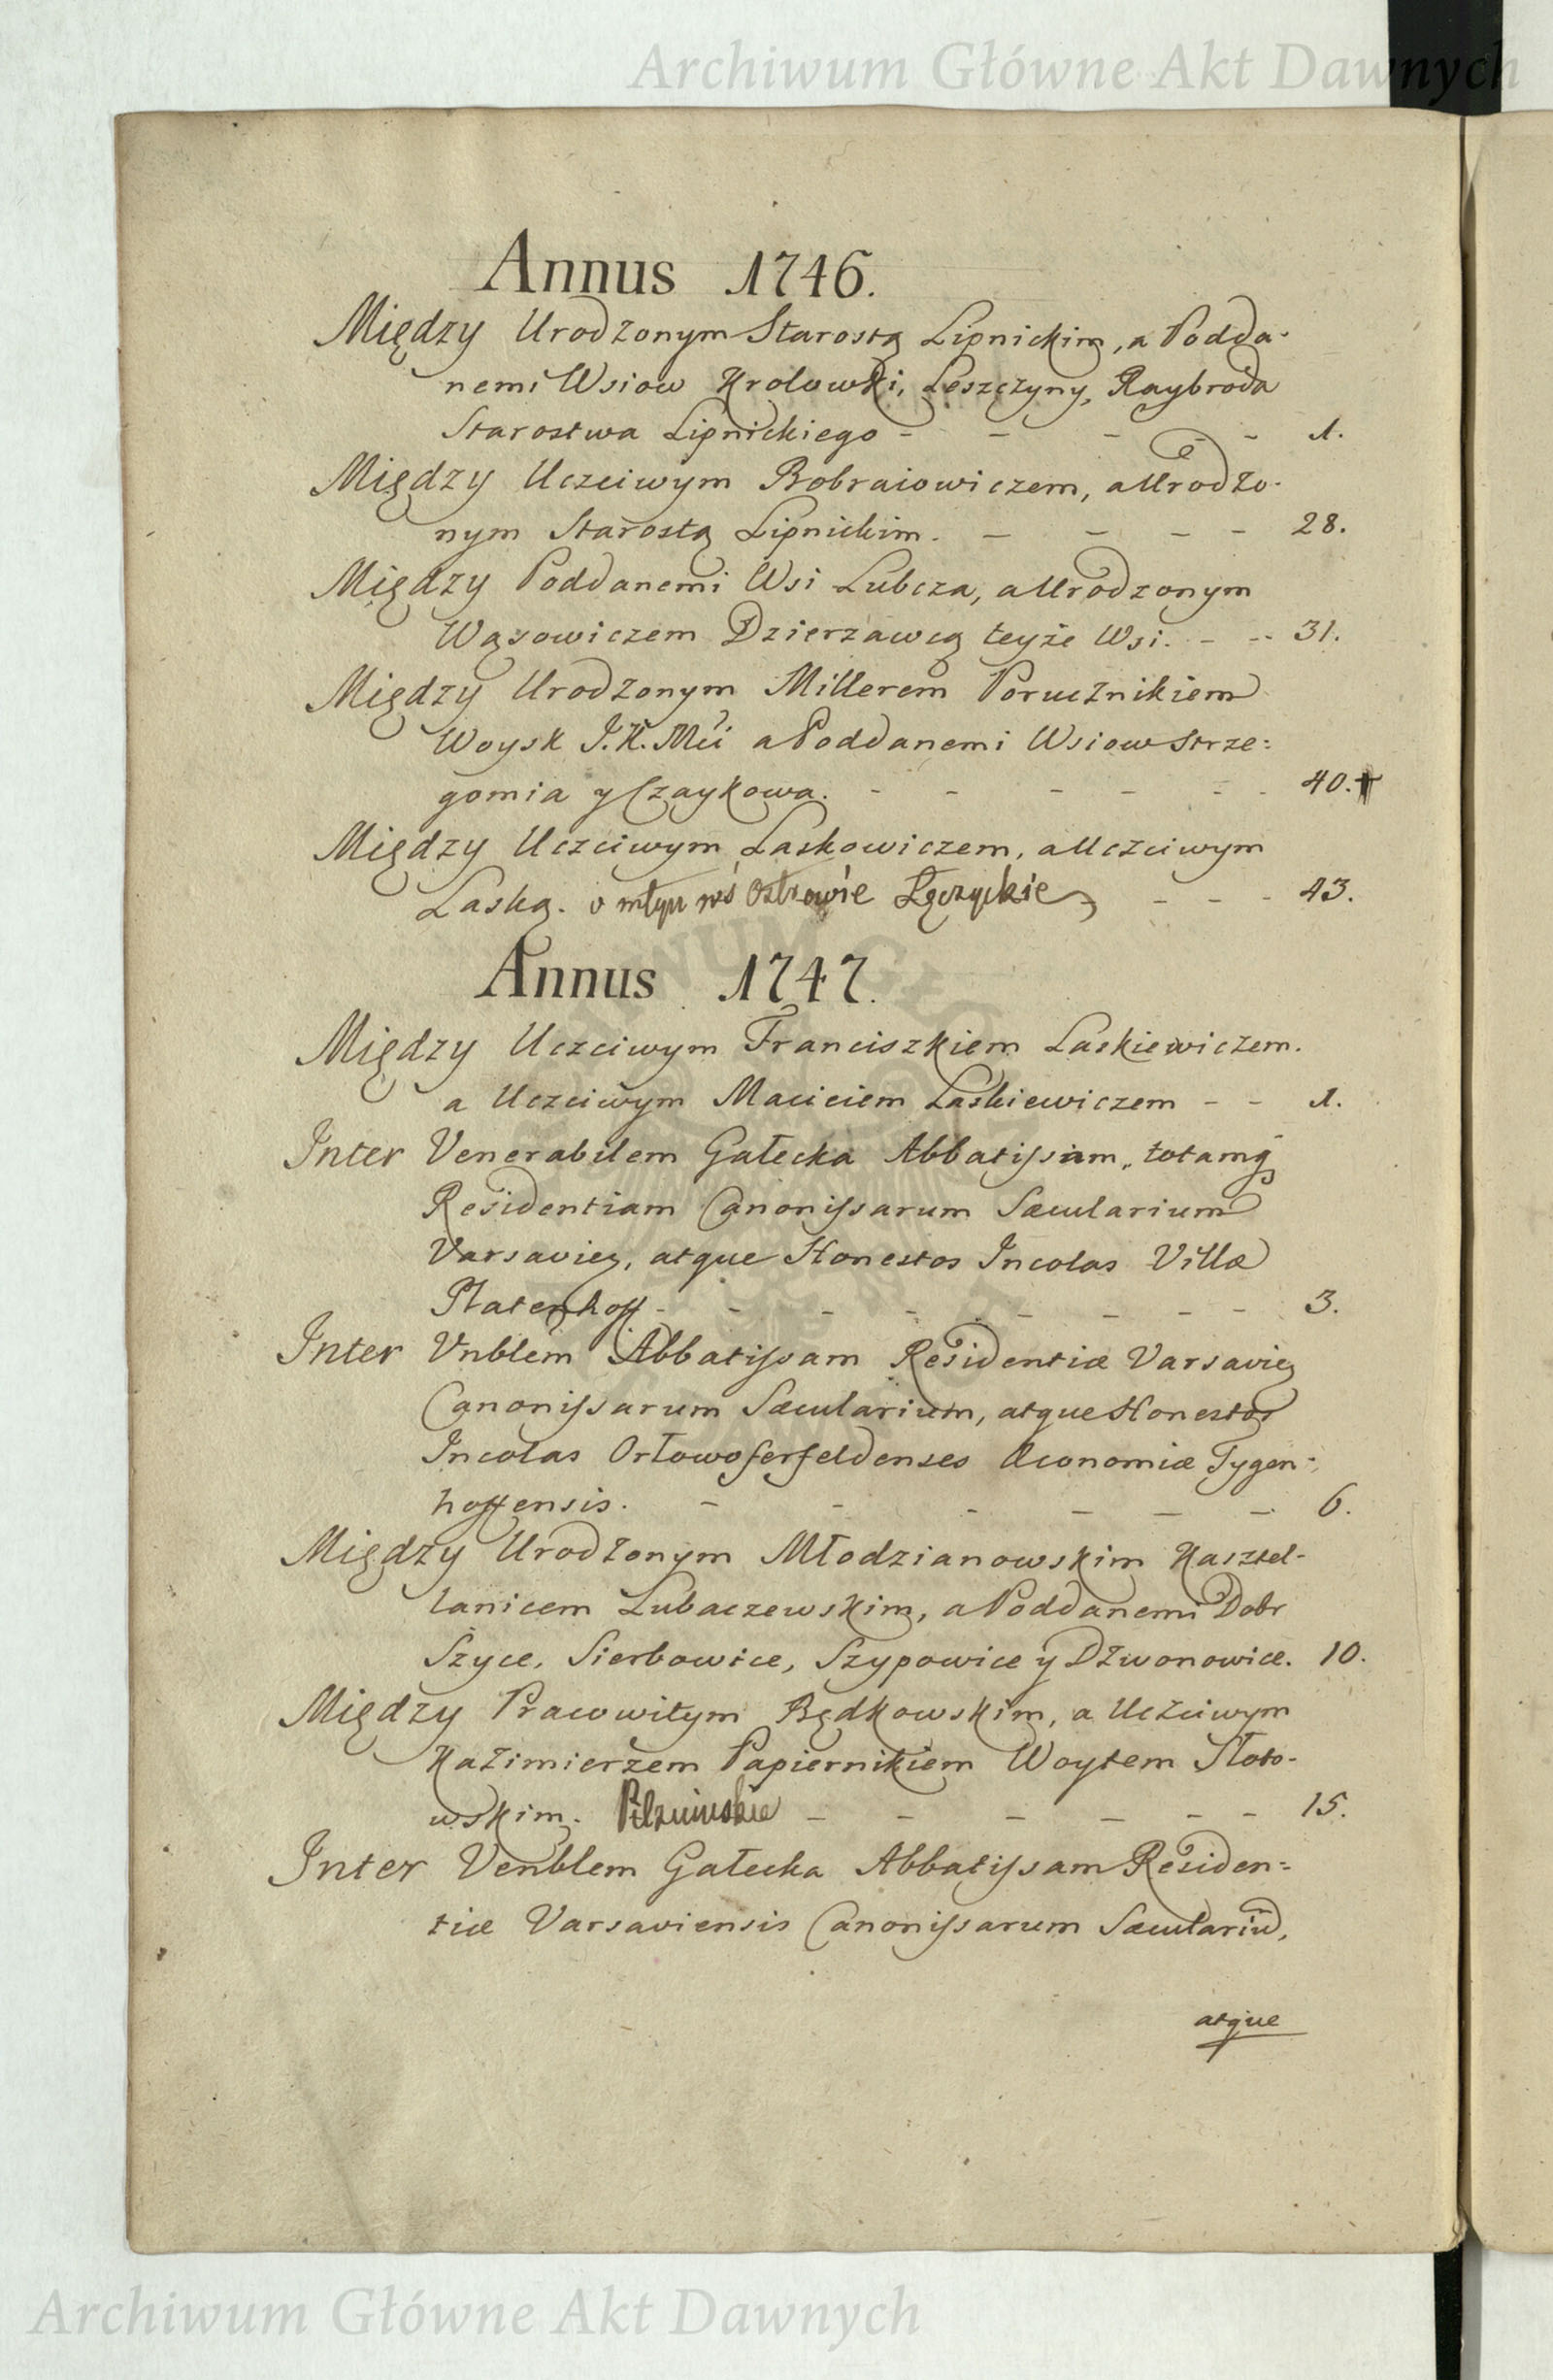 Archiwum Główne Akt Dawnych
Annus 1746.
Między Urodzonym Starostą Lipnickim, a Podda-
nemi Wsiow Krolowki, Leszczyny, Raybroda
Starostwa Lipnickiego - - - - - 1.
Między Uczciwym Bobraiowiczem, a Urodzo-
nym Starostą Lipnickim. - - - - 28.
Między Poddanemi Wsi Lubcza, a Urodzonym
Wąsowiczem Dzierzawcą teyże Wsi. - - 31.
Między Urodzonym Millerem Porucznikiem
Woysk J. K. Mci a Poddanemi Wsiow Strze=
gomia y Czaykowa. - - - - - - 40.
Między Uczciwym Laskowiczem, a Uczciwym
Laską. o młyn wś Ostrowie Łęczyckie - - - 43.
Annus 1747.
Między Uczciwym Franciszkiem Laskiewiczem.
a Uczciwym Macieiem Laskiewiczem - - 1.
Inter Venerabilem Gałecka Abbatissam, totamq
Residentiam Canonissarum Sæcularium
Varsavieȝ, atque Honestos Incolas Villæ
Platenhoff - - - - - - - - 3.
Inter Vnblem Abbatissam Residentiæ Varsavieȝ
Canonissarum Sæcularium, atque Honestos
Incolas Orłowoferfeldenses Œconomiæ Tygen=
hoffensis. - - - - - - 6.
Między Urodzonym Młodzianowskim Kasztel-
lanicem Lubaczewskim, a Poddanemi Dobr
Szyce, Sierbowice, Szypowice y Dzwonowice. 10.
Między Pracowitym Będkowskim, a Uczciwym
Kazimierzem Papiernikiem Woytem Słoto-
wskim. Pilznińskie - - - - - - 15.
Inter Venblem Gałecka Abbatissam Residen=
tiæ Varsaviensis Canonissarum Sæculariū,
atque
Archiwum Główne Akt Dawnych